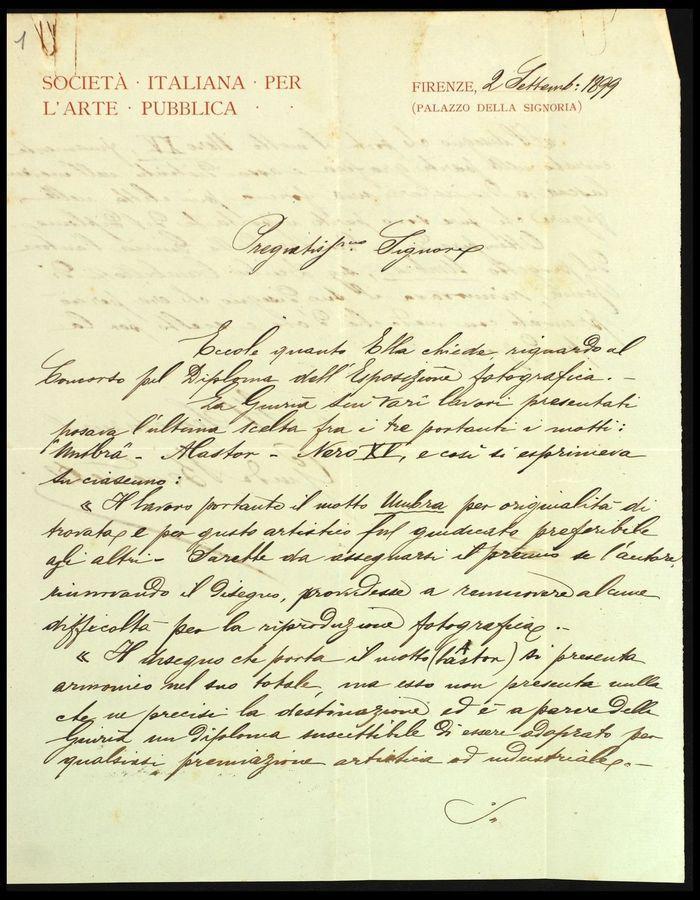 1
SOCIETÀ · ITALIANA · PER
L'ARTE · PUBBLICA · ·
FIRENZE, 2 Settemb: 1899
(PALAZZO DELLA SIGNORIA)
Pregiatissimo Signore
Eccole quanto Ella chiede riguardo al
Concorso pel Diploma dell'Esposizione fotografica. –
La Giuria sui varî lavori presentati
posava l'ultima scelta fra i tre portanti i motti:
"Umbra" – Alastor – Nero XV, e così si esprimeva
su ciascuno:
« Il lavoro portante il motto Umbra per originalità di
trovata e per gusto artistico fu giudicato preferibile
agli altri – Sarebbe da assegnarsi il premio se l'autore,
rinnovando il disegno, provvedesse a rimuovere alcune
difficoltà per la riproduzione fotografica. –
« Il disegno che porta il motto (Alastor) si presenta
armonico nel suo totale, ma esso non presenta nulla
che ne precisi la destinazione ed è a parere della
Giuria un diploma suscettibile di essere adoprato per
qualsiasi premiazione artistica od industriale. –